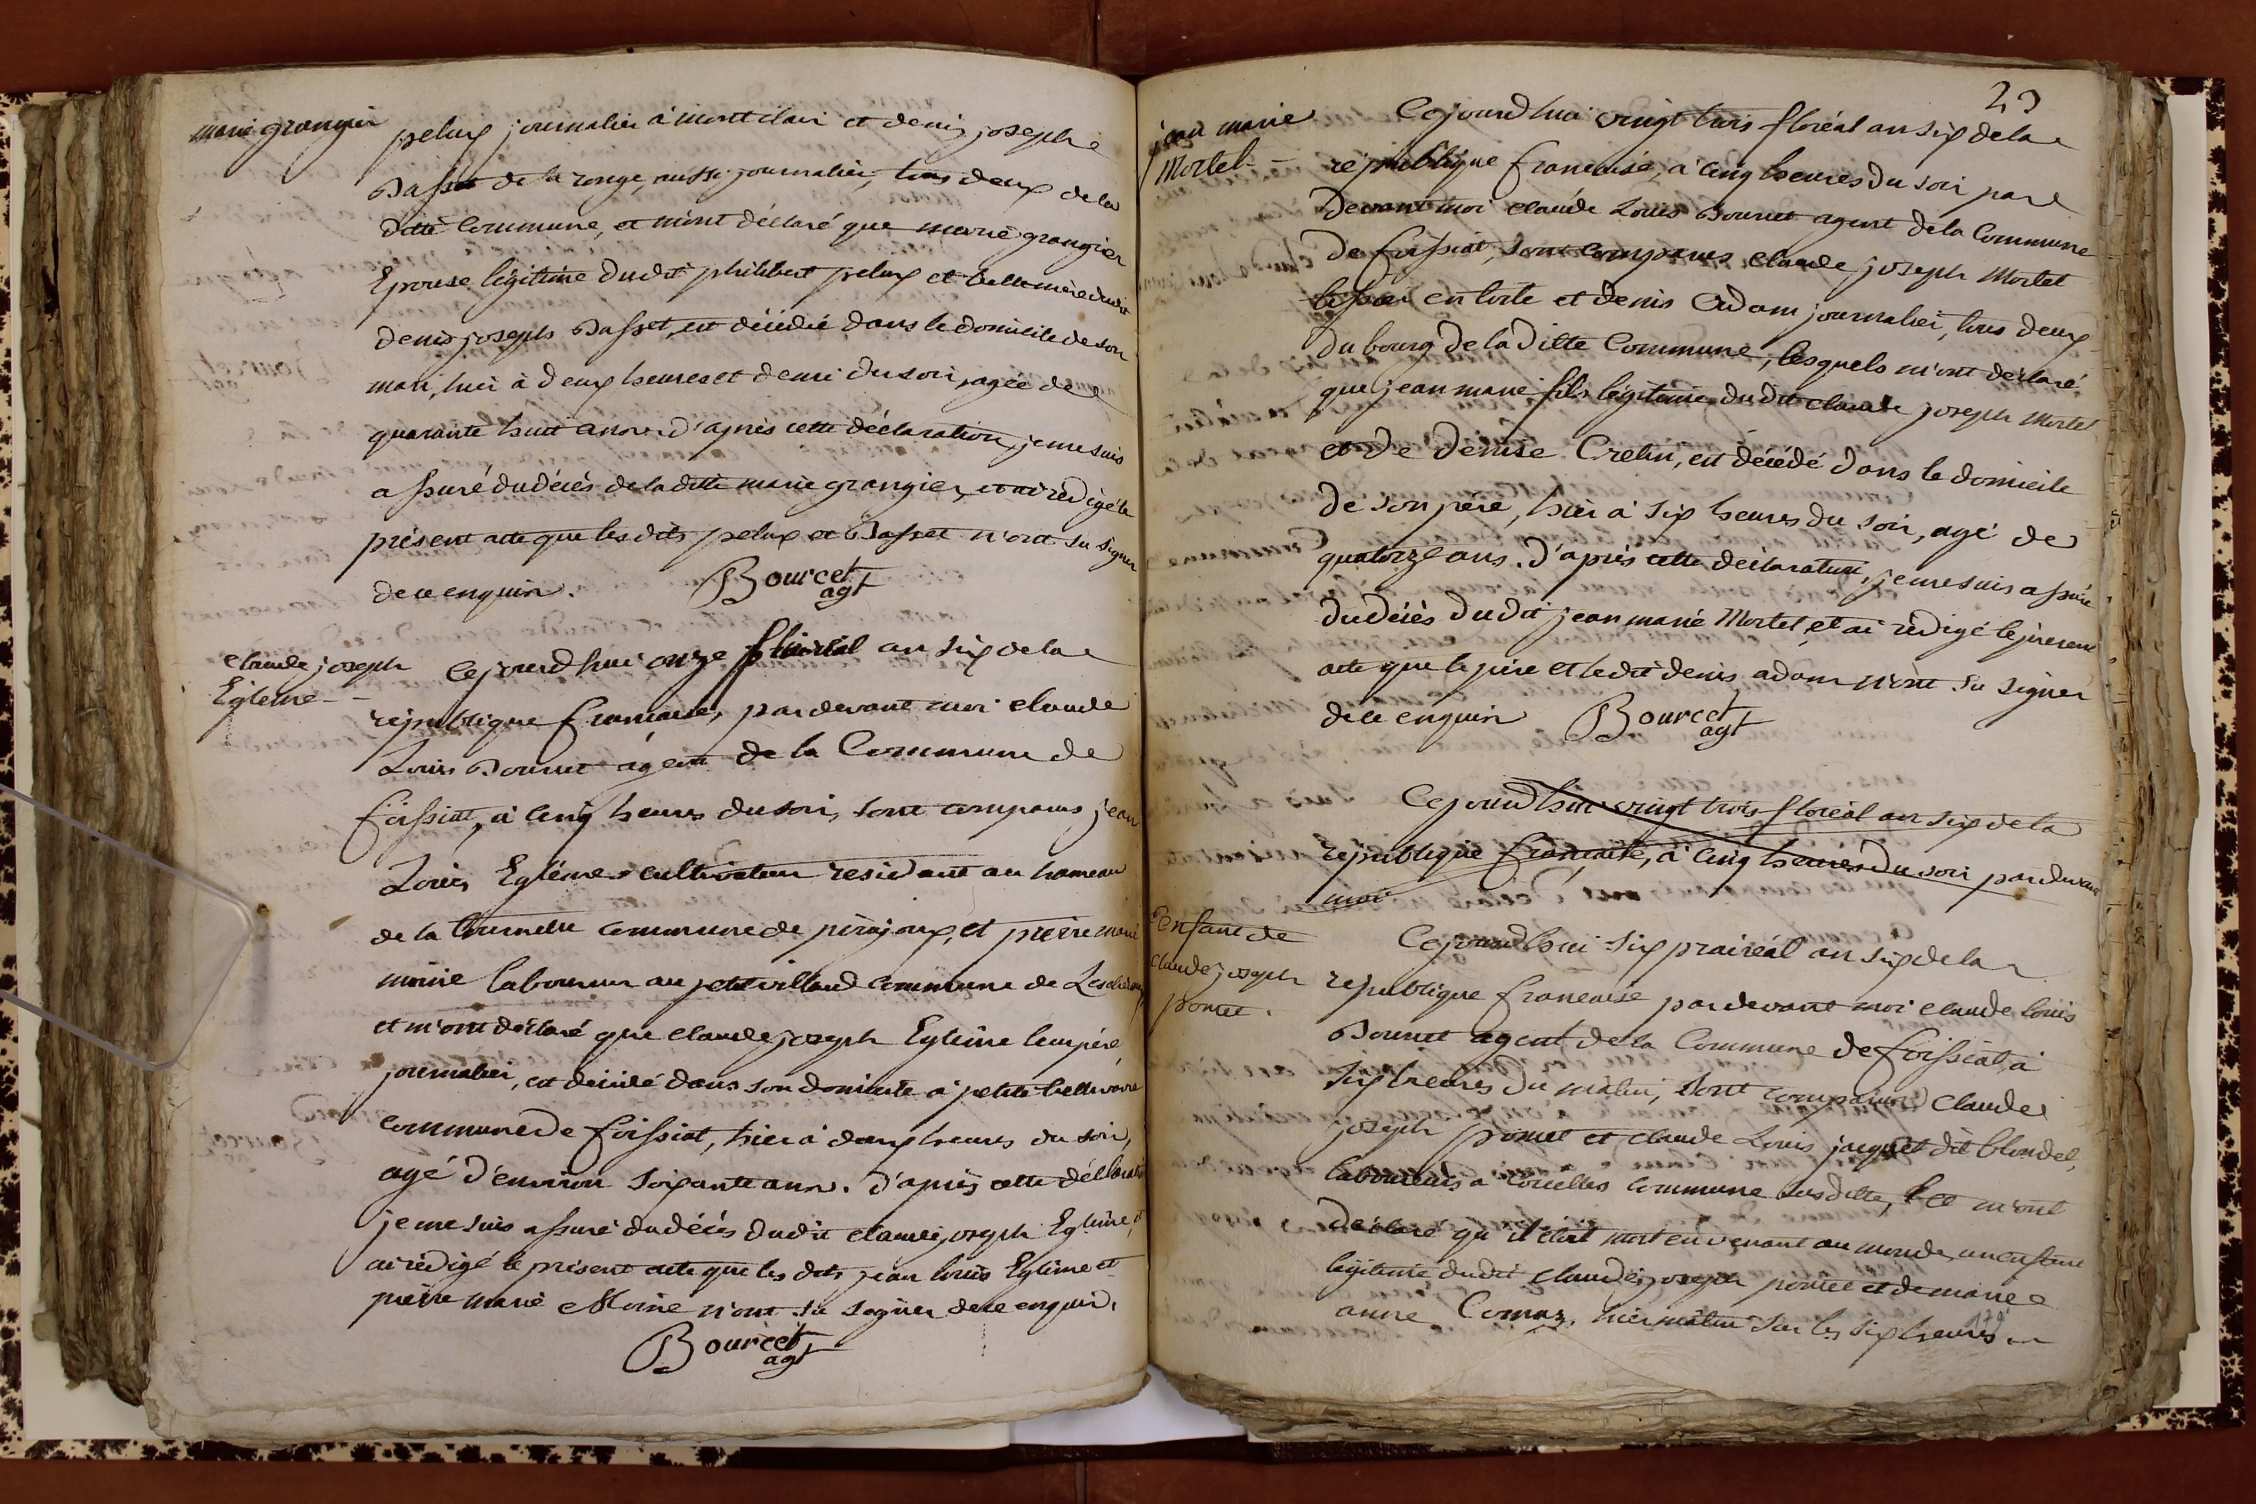 marie grangier
pelux journalier à montclair et denis joseph
Basset de la ronge, aussi journalier, tous deux de la
ditte Commune, et m'ont déclaré que marie grangier
Epouse légitime dudit philibert pelux et belle mère dudit
denis joseph Basset, est décédée dans le domicile de son
mari, hier à deux heures et demi du soir, agée de
quarante huit ans. d'après cette déclaration, je me suis
assuré du décès de la ditte marie grangier, et ai rédigé le
présent acte que les dits pelux et Basset n'ont su signer
de ce enquir.
Bourcet
agt
claude joseph
Egleme
Cejourd'hui onze floréal an six de la
république francaise, pardevant moi claude
Louis Bourcet agent de la Commune de
foissiat, à cinq heures du soir, sont comparus jean
Louis Egleme cultivateur résidant au hameau
de la commune de pirajoux, et pierre marie
moine laboureur au petit villard commune de
et m'ont déclaré que claude joseph Egleme leur père
journalier, est décédé dans son domicile à petite bellevavre
commune de foissiat, hier à deux heures du soir,
agé d'environ soixante ans. d'après cette déclaration
je me suis assuré du décès dudit claude joseph Egleme, et
ai rédigé le présent acte que les dits jean louis Egleme et
pierre marie Moine n'ont su signer de ce enquir.
Bourcet
agt
23
jean marie
Mortel
Cejourd'hui vingt trois floréal an six de la
république francaise, à cinq heures du soir par
devant moi claude Louis Bourcet agent de la Commune
de foissiat, sont comparus claude joseph Mortel
tissier en toile et denis Adam journalier, tous deux
du bourg de la ditte Commune, lesquels m'ont déclaré
que jean marie fils légitime dudit claude joseph Mortel
et de denise Crelin, est décédé dans le domicile
de son père, hier à six heures du soir, agé de
quatorze ans. d'après cette déclaration, je me suis assuré
du décès dudit jean marie Mortel, et ai rédigé le présent
acte que le père et le dit denis adam n'ont su signer
de ce enquir
Bourcet
agt
Cejourd'hui vingt trois floréal an six de la
république francaise, à cinq heures du soir pardevant
moi
Enfant de
claude joseph
pomet.
Cejourd'hui six prairéal an six de la
république francaise pardevant moi claude louis
Bourcet agent de la Commune de foissiat, à
six heures du matin, sont comparus Claude
joseph pomet et claude Louis jacquet dit blondel,
laboureurs à Corcelles commune susditte, et m'ont
déclaré qu'il étoit mort en venant au monde, un enfant
légitime dudit claude joseph pomet et de marie
anne Comaz, hier matin sur les six heures